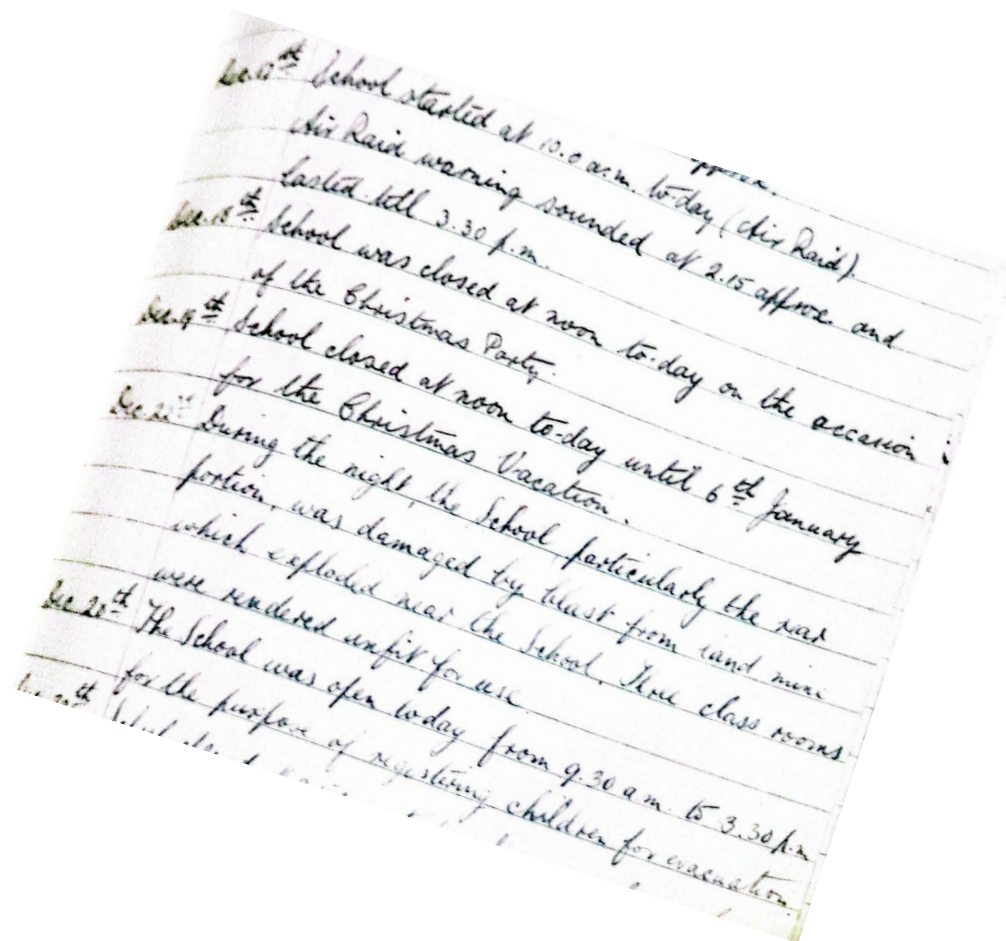 approx.
Dec. 12th School started at 10.0 a.m. to-day (Air Raid).
Air Raid warning sounded at 2.15 approx. and
lasted till 3.30 p.m.
Dec. 18th School was closed at noon to-day on the occasion
of the Christmas Party.
Dec. 19th School closed at noon to-day until 6th January
for the Christmas Vacation.
Dec. 21st During the night, the School particularly the rear
portion, was damaged by blast from land mine
which exploded near the School. Three class rooms
were rendered unfit for use.
Dec. th The School was open today from 9.30 a.m. to 3.30 p.m.
for the purpose of registering children for evacuation.
School